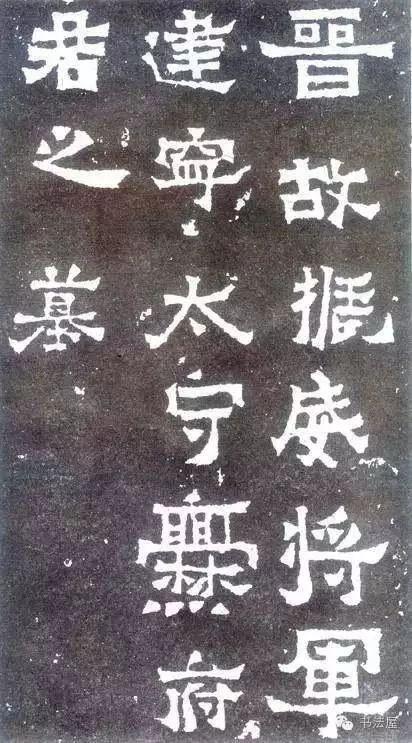 晋故振威将軍
建寧太守爨府
君之墓
书法屋